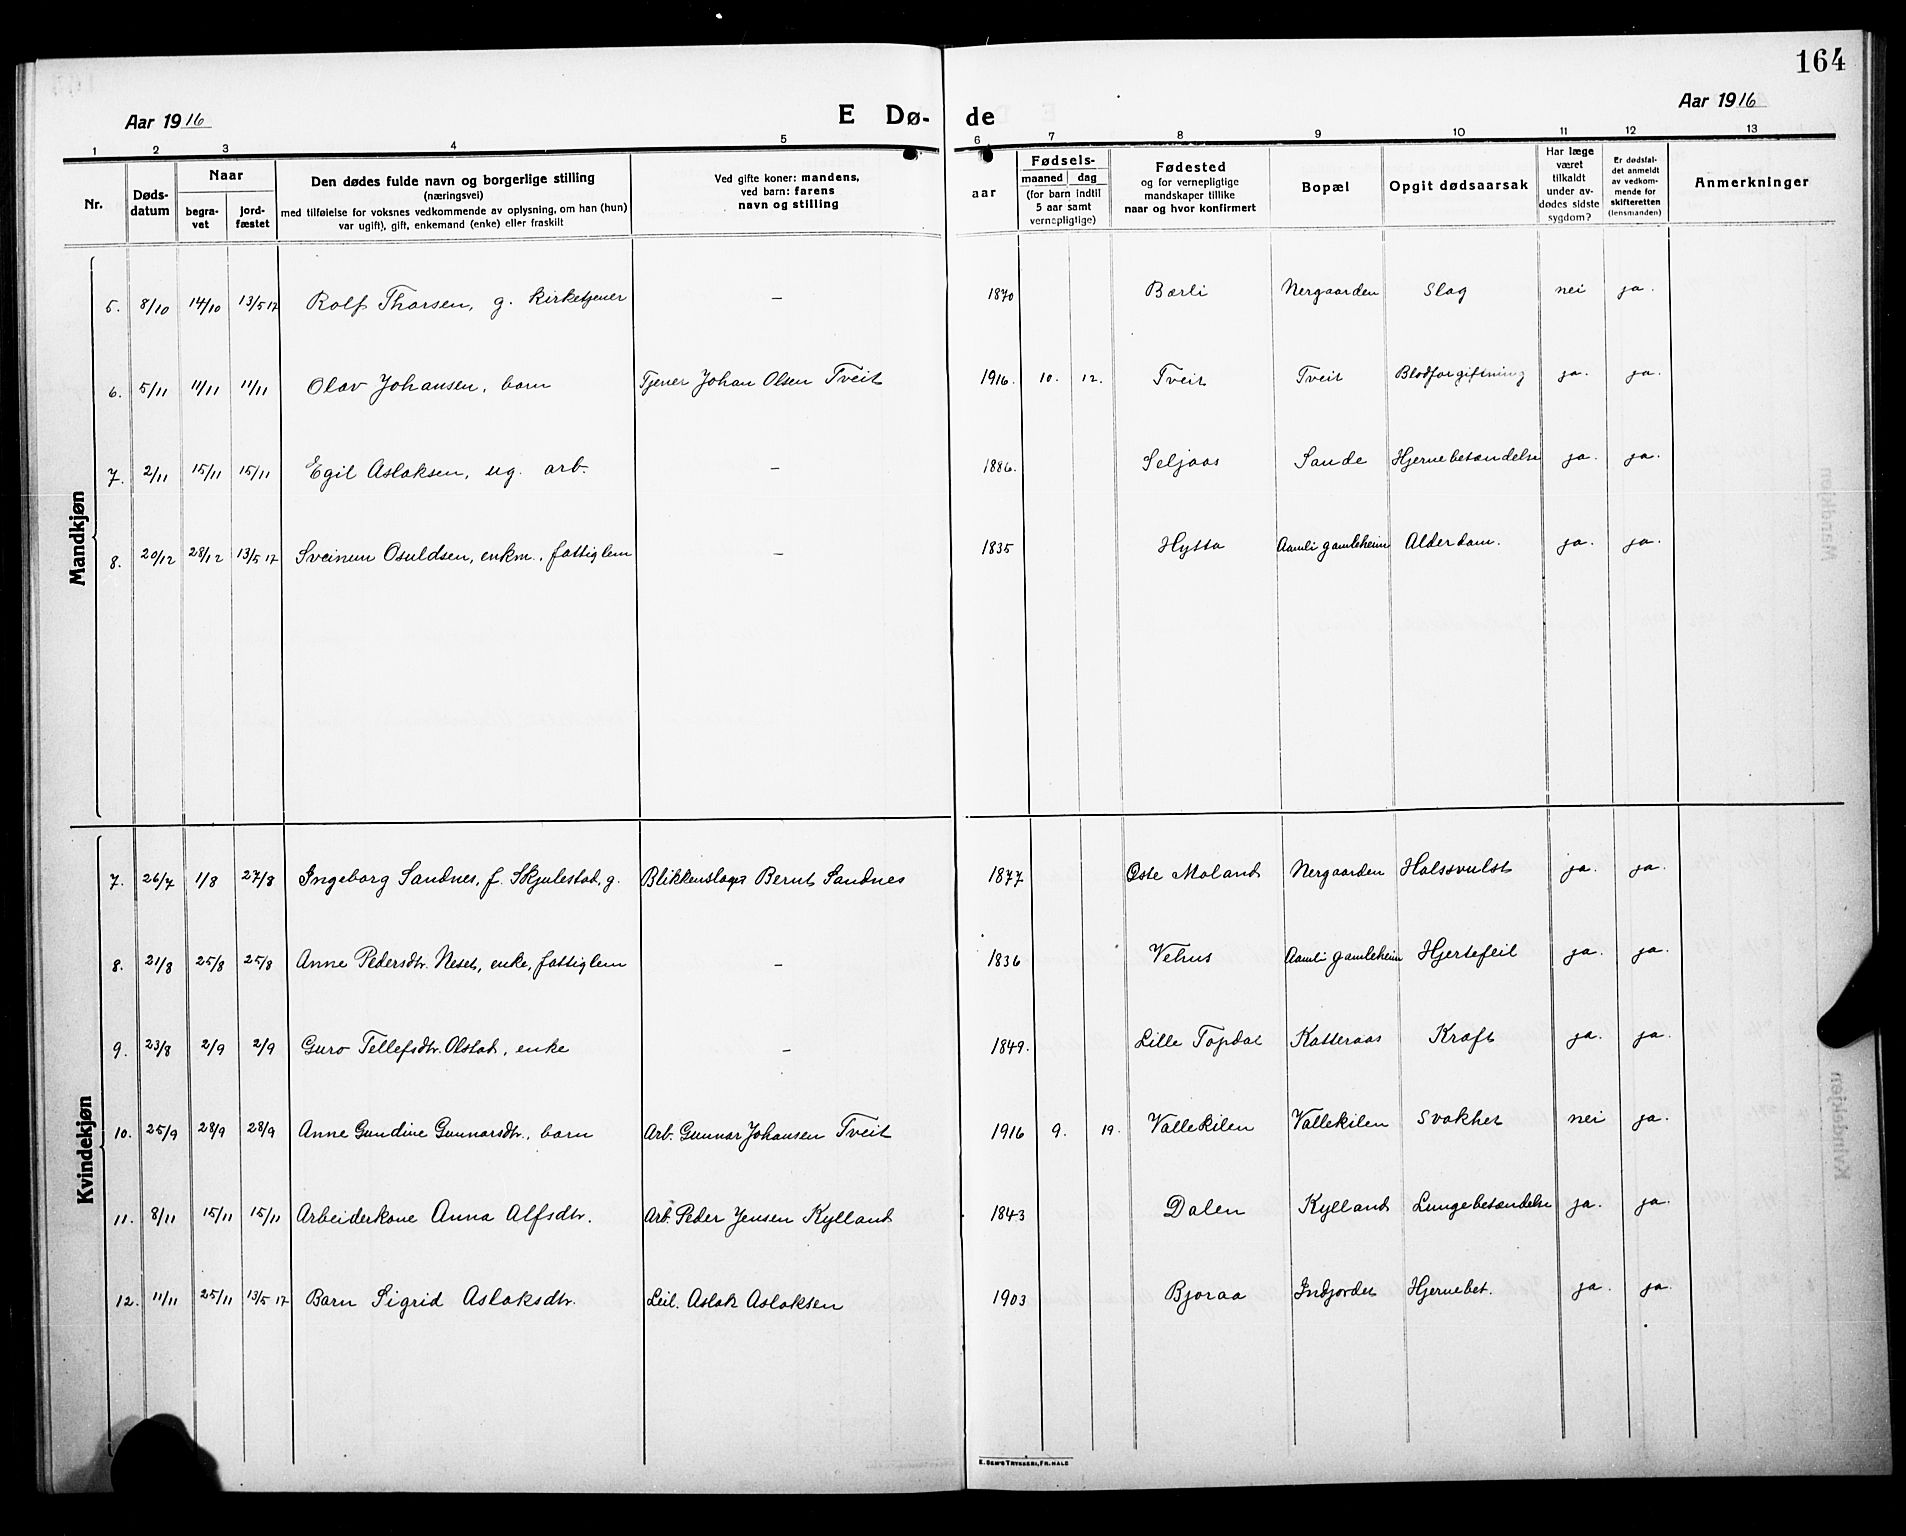 164
Aar 1916 E Dø- de Aar 1916
1 2 3 4 5 6 7 8 9 10 11 12 13
Nr.
Døds-
datum
Naar
begra-
vet
jord-
fæstet
Den dødes fulde navn og borgerlige stilling
(næringsvei)
med tilføielse for voksnes vedkommende av oplysning, om han (hun)
var ugift), gift, enkemand (enke) eller fraskilt
Ved gifte koner: mandens,
ved barn: farens
navn og stilling
aar
Fødsels-
maaned dag
(for barn indtil
5 aar samt
vernepligtige)
Fødested
og for vernepligtige
mandskaper tillike
naar og hvor konfirmert
Bopæl
Opgit dødsaarsak
Har læge
været
tilkaldt
under av-
dødes sidste
sygdom?
Er dødsfal-
det anmeldt
av vedkom-
mende for
skifteretten
(lensmanden)
Anmerkninger
Mandkjøn
5. 8/10 14/10 13/5 17 Rolf Thorsen, g. kirketjener – 1870 Bærli Nergaarden Slag nei ja.
6. 5/11 11/11 11/11 Olav Johansen, barn Tjener Johan Olsen Tveit 1916. 10. 12. Tveit Tveit Blodforgiftning ja. ja.
7. 2/11 15/11 15/11 Egil Aslaksen, ug. arb. – 1886. Seljaas Sande Hjernebetændelse ja. ja.
8. 20/12 28/12 13/5 17 Sveinun Osuldsen, enkm., fattiglem – 1835 Hytta Aamli gamleheim Alderdom. ja. ja.
Kvindekjøn
7. 26/7 1/8 27/8 Ingeborg Sandnes, f. Skjulestad, g. Blikkenslager Bernt Sandnes 1877 Øste Moland Nergaarden Halssvulst ja. ja.
8. 21/8 25/8 25/8 Anne Pedersdtr. Neset, enke, fattiglem – 1836 Vehus Aamli gamleheim Hjertefeil ja. ja.
9. 23/8 2/9 2/9 Guro Tellefsdtr. Olstad, enke – 1849. Lille Topdal Katteraas Kræft ja. ja.
10. 25/9 28/9 28/9 Anne Gundine Gunnarsdtr., barn Arb. Gunnar Johansen Tveit 1916 9. 19. Vallekilen Vallekilen Svakhet nei ja.
11. 8/11 15/11 15/11 Arbeiderkone Anna Alfsdtr. Arb. Peder Jensen Kylland 1843 Dalen Kylland Lungebetændelse ja. ja.
12. 11/11 25/11 13/5 17 Barn Sigrid Aslaksdtr. Leil. Aslak Aslaksen 1903 Bjoraa Indjordet Hjernebet. ja. ja.
E. SEM'S TRYKKERI, FR.HALD